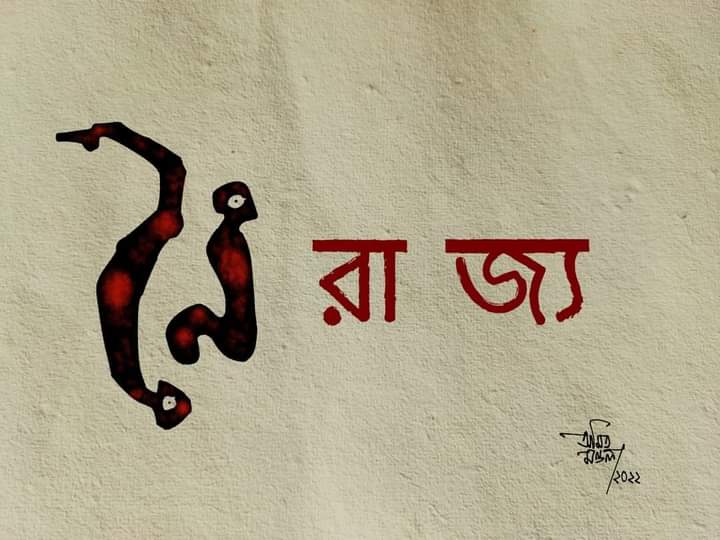 নৈরাজ্য
অমিত
মন্ডল
/২০২২